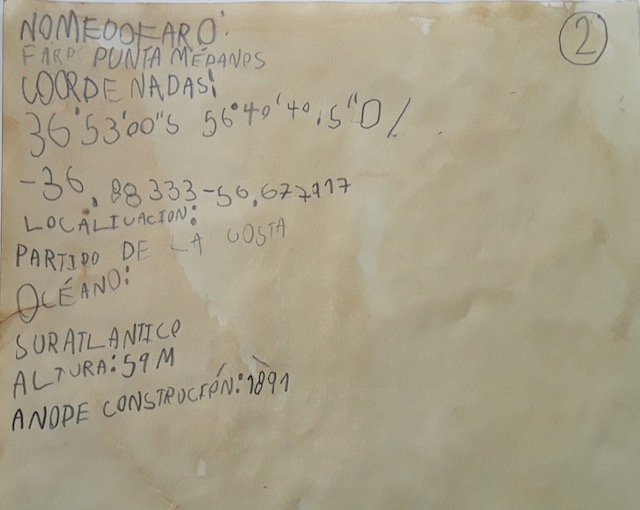 NOMEDOFARO:
FARO PUNTA MÉDANOS
COORDENADAS:
36°53'00"S 56°40'40,5"O /
-36,88333 -56,677917
LOCALIUACION:
PARTIDO DE LA COSTA
OCÉANO:
SURATLANTICO
ALTURA: 59 M
ANODE CONSTRUCIÓN: 1891
2